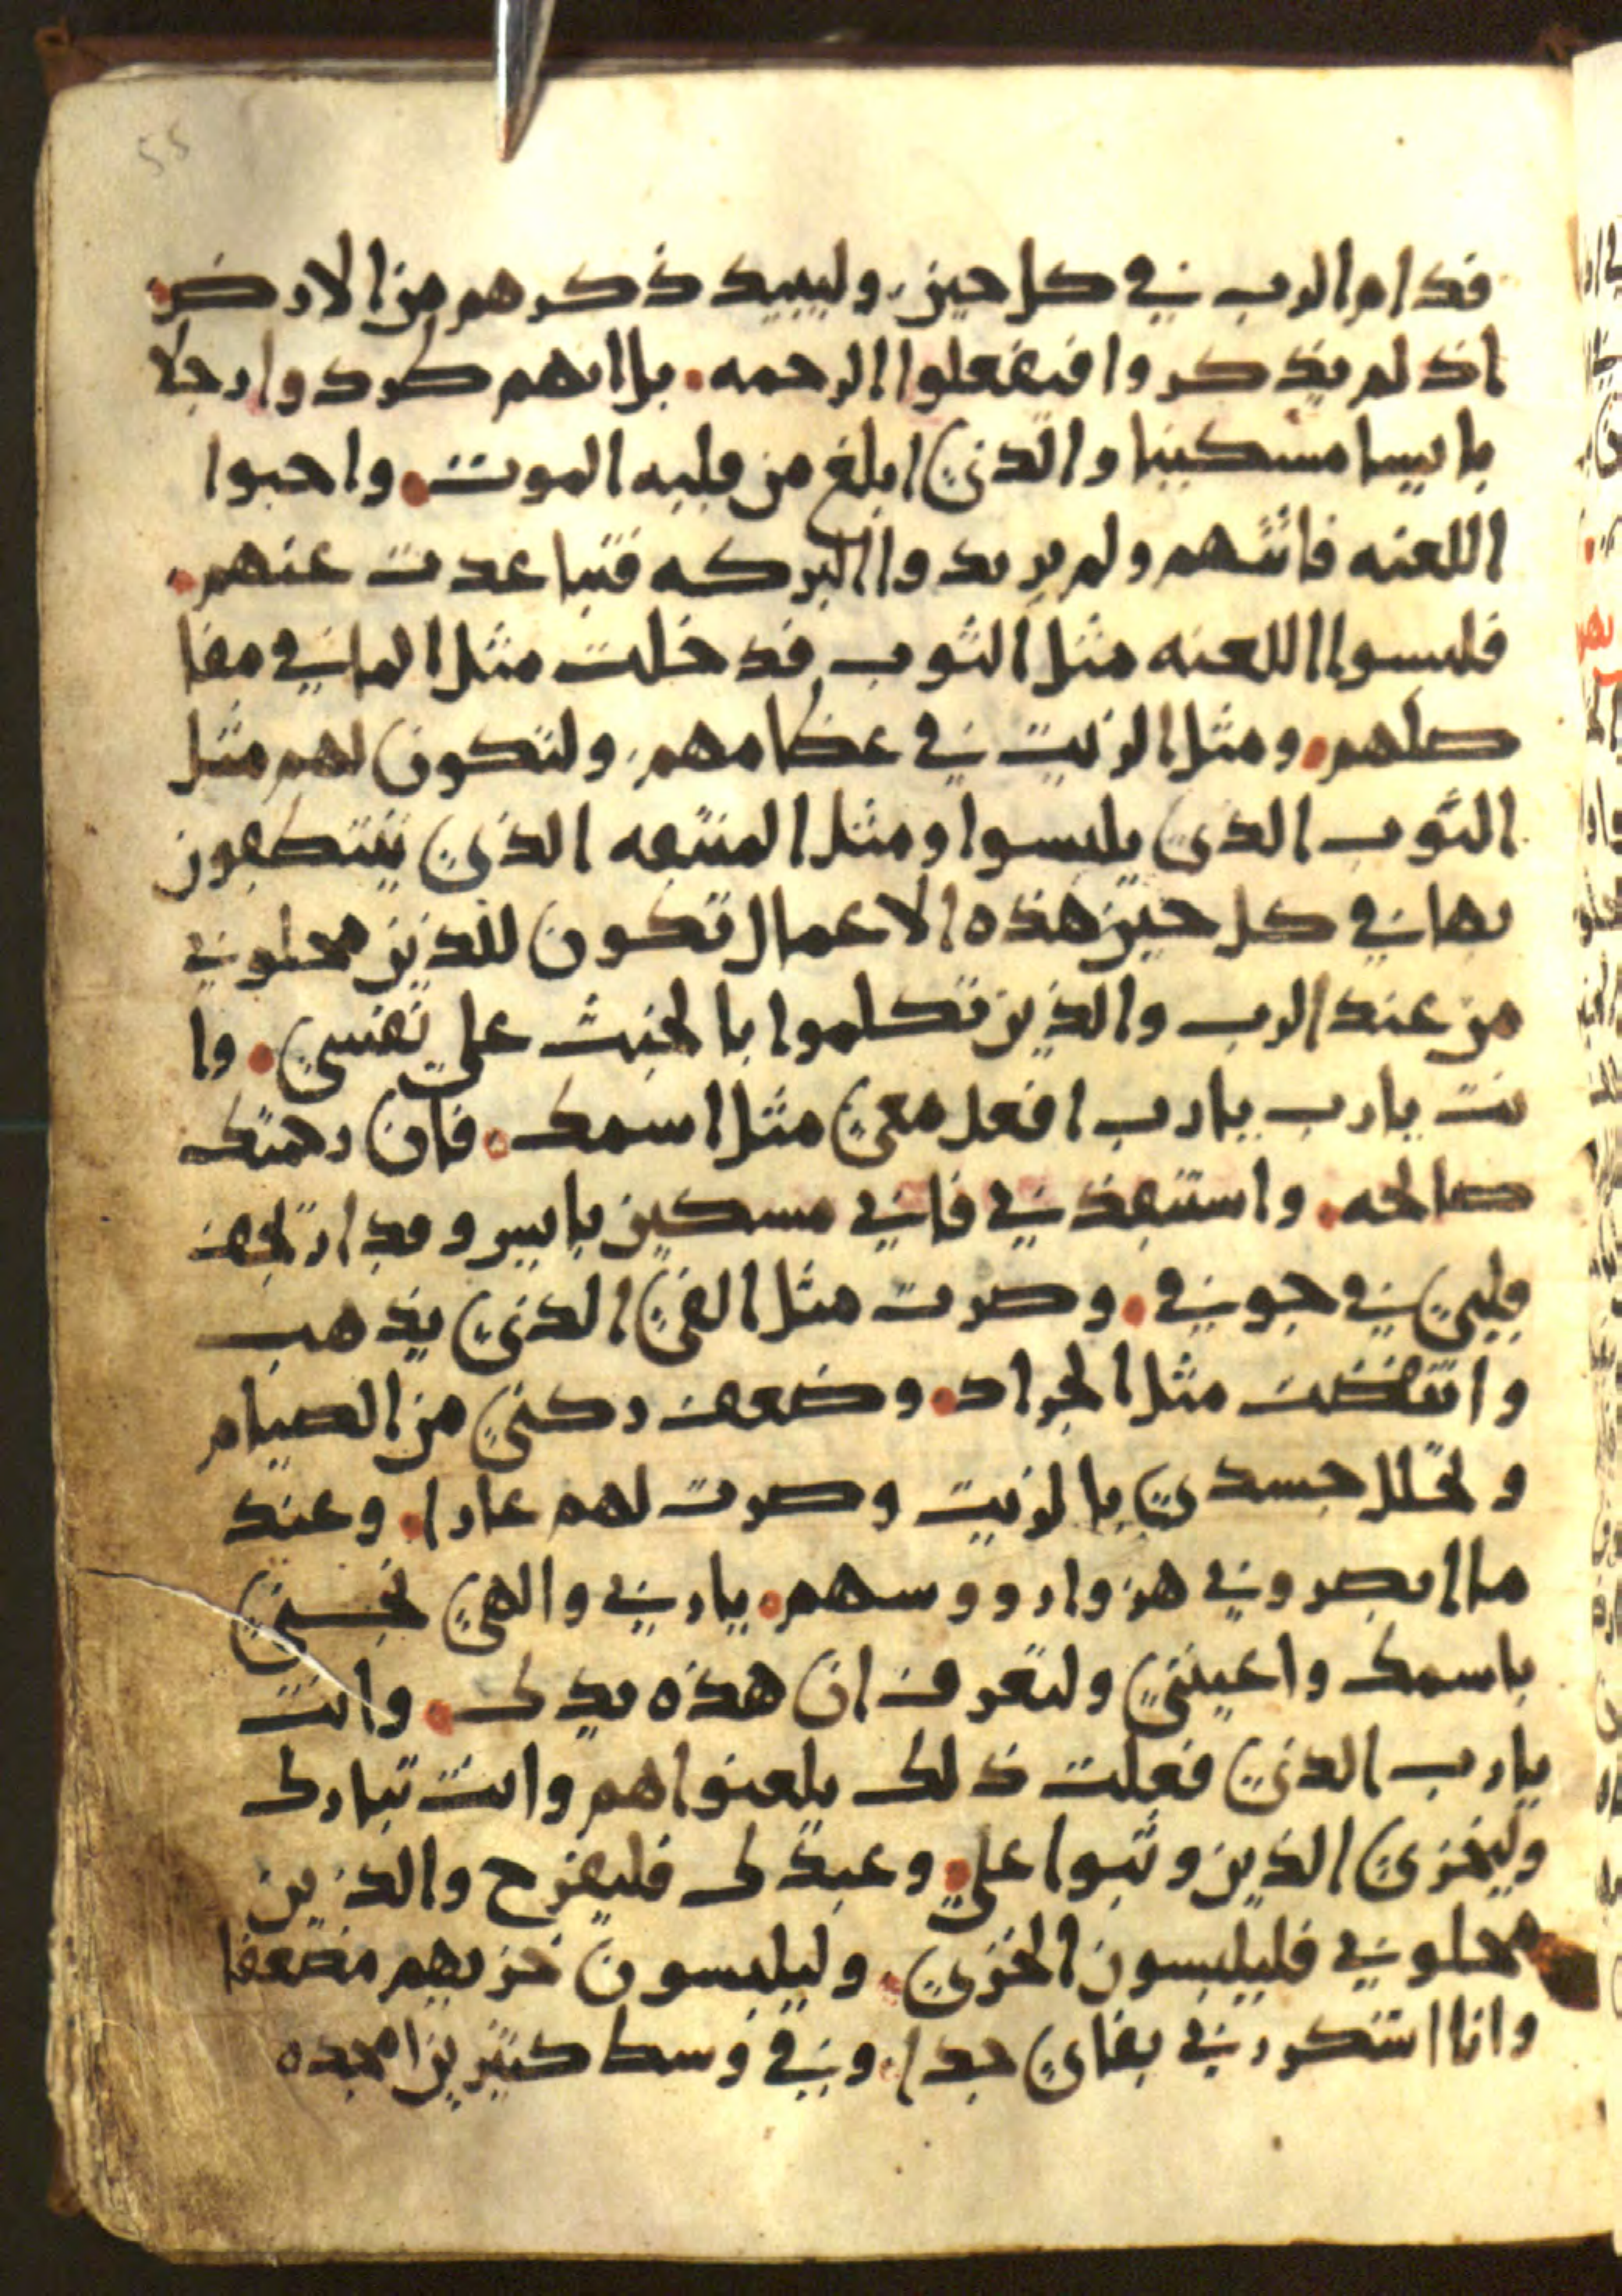 55
قدام الرب في كل حين، وليبيد ذكرهم من الارض
اذ لم يذكروا فيفعلوا الرحمه. بل انهم طردوا رجلا
باييسا مسكينا والذي ابلغ من قلبه الموت. واحبوا
اللعنه فاتتهم ولم يريدوا البركه فتباعدت عنهم.
فلبسوا اللعنه مثل الثوب فدخلت مثل الما في مفا
صلهم. ومثل الزيت في عظامهم، ولتكون لهم مثل
الثوب الذي يلبسوا ومثل المنتقه الذي ينتطقون
بها في كل حين هذه الاعمال تكون للذين محلوني
من عند الرب والذين تكلموا بالخبث على نفسي. وا
نت يارب يارب افعل معي مثل اسمك. فان رحمتك
صالحه. واستنقذني فاني مسكين باييس وقد ارتجف
قلبي في جوفي. وصرت مثل الفي الذي يذهب
وانتفضت مثل الجراد. وضعف ركبي من الصيام
وتحلل جسدي بالزيت وصرت لهم عارا. وعند
ما ابصروني هزوا رووسهم. يا ربي والهي نجيني
باسمك واعينني ولتعرف ان هذه يدك. وانت
يارب الذي فعلت ذلك يلعنوا هم وانت تبارك
وليخزى الذين وثبوا علي. وعبدك فليفرح والذين
محلوني فليلبسون الخزي. وليلبسون خزيهم مضعفا
وانا اشكر ربي بفاي جدا. وفي وسط كثيرين امجده